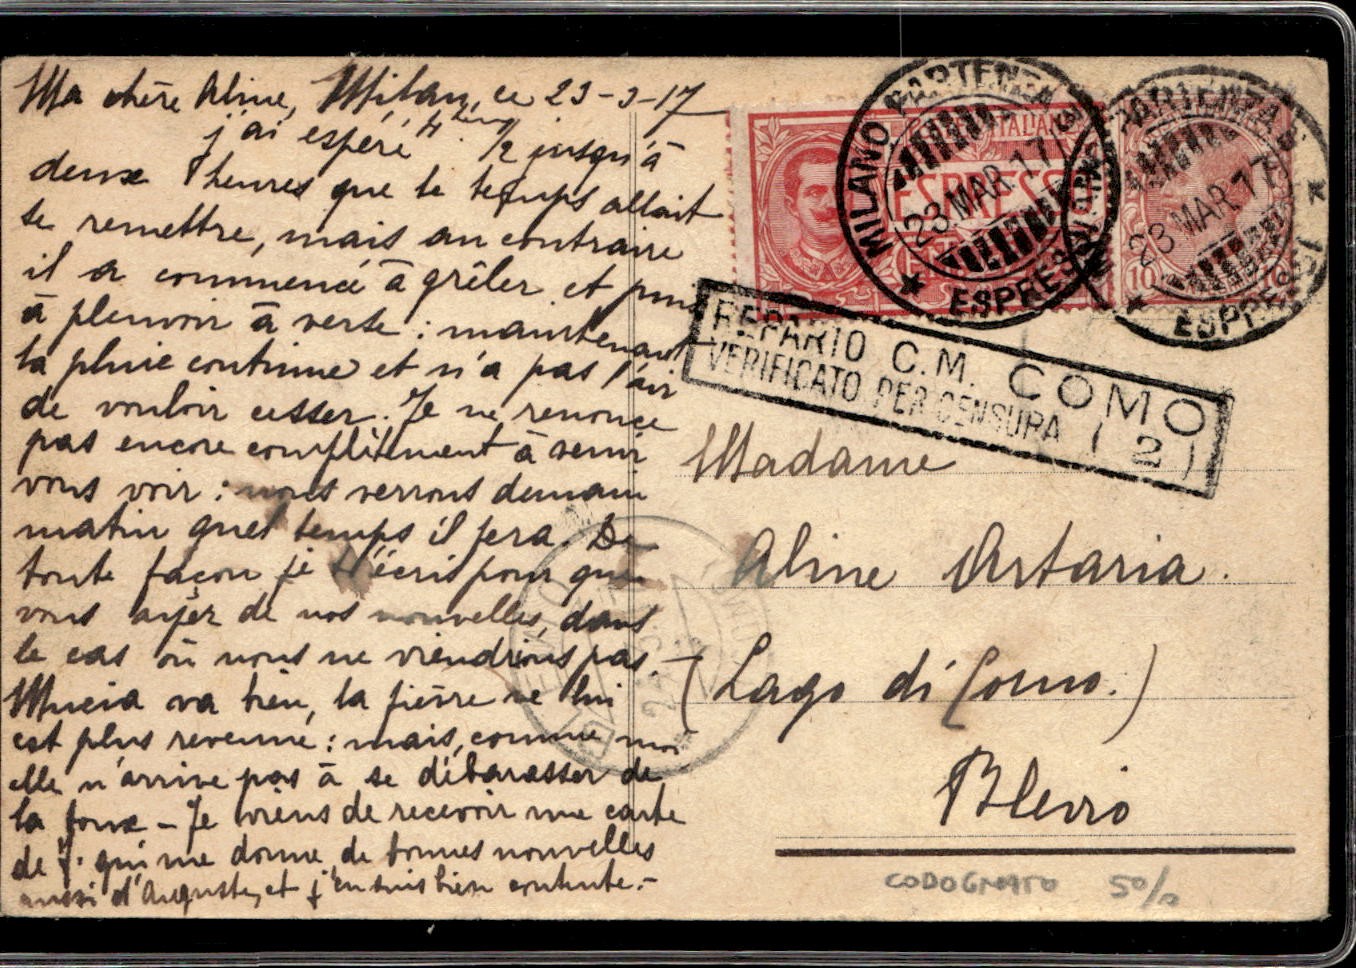 Ma chère Aline, Milan, ce 23-3-17
j'ai espéré jusqu'à
deux heures que le temps allait
se remettre, mais au contraire
il a commencé à grêler et puis
à pleuvoir à verse : maintenant
la pluie continue et n'a pas l'air
de vouloir cesser. Je ne renonce
pas encore complètement à venir
vous voir : nous verrons demain
matin quel temps il fera. De
toute façon je t'écris pour que
vous ayez de nos nouvelles, dans
le cas où nous ne viendrions pas. –
va bien, la fièvre ne lui
est plus revenue : mais, comme moi
elle n'arrive pas à se débarasser de
la toux – Je viens de recevoir une carte
de J. qui me donne de bonnes nouvelles
aussi d'Auguste, et j'en suis bien contente. –
MILANO PARTENZA
ESPRESSI
23 MAR. 17
ESPRESSO
ITALIANE
PARTENZA
23 MAR. 17
ESPRESSI
10
REPARTO C.M. COMO
VERIFICATO PER CENSURA (2)
Madame
Aline Artaria.
(Lago di Como.)
Blevio
CODOGNATO 50/0